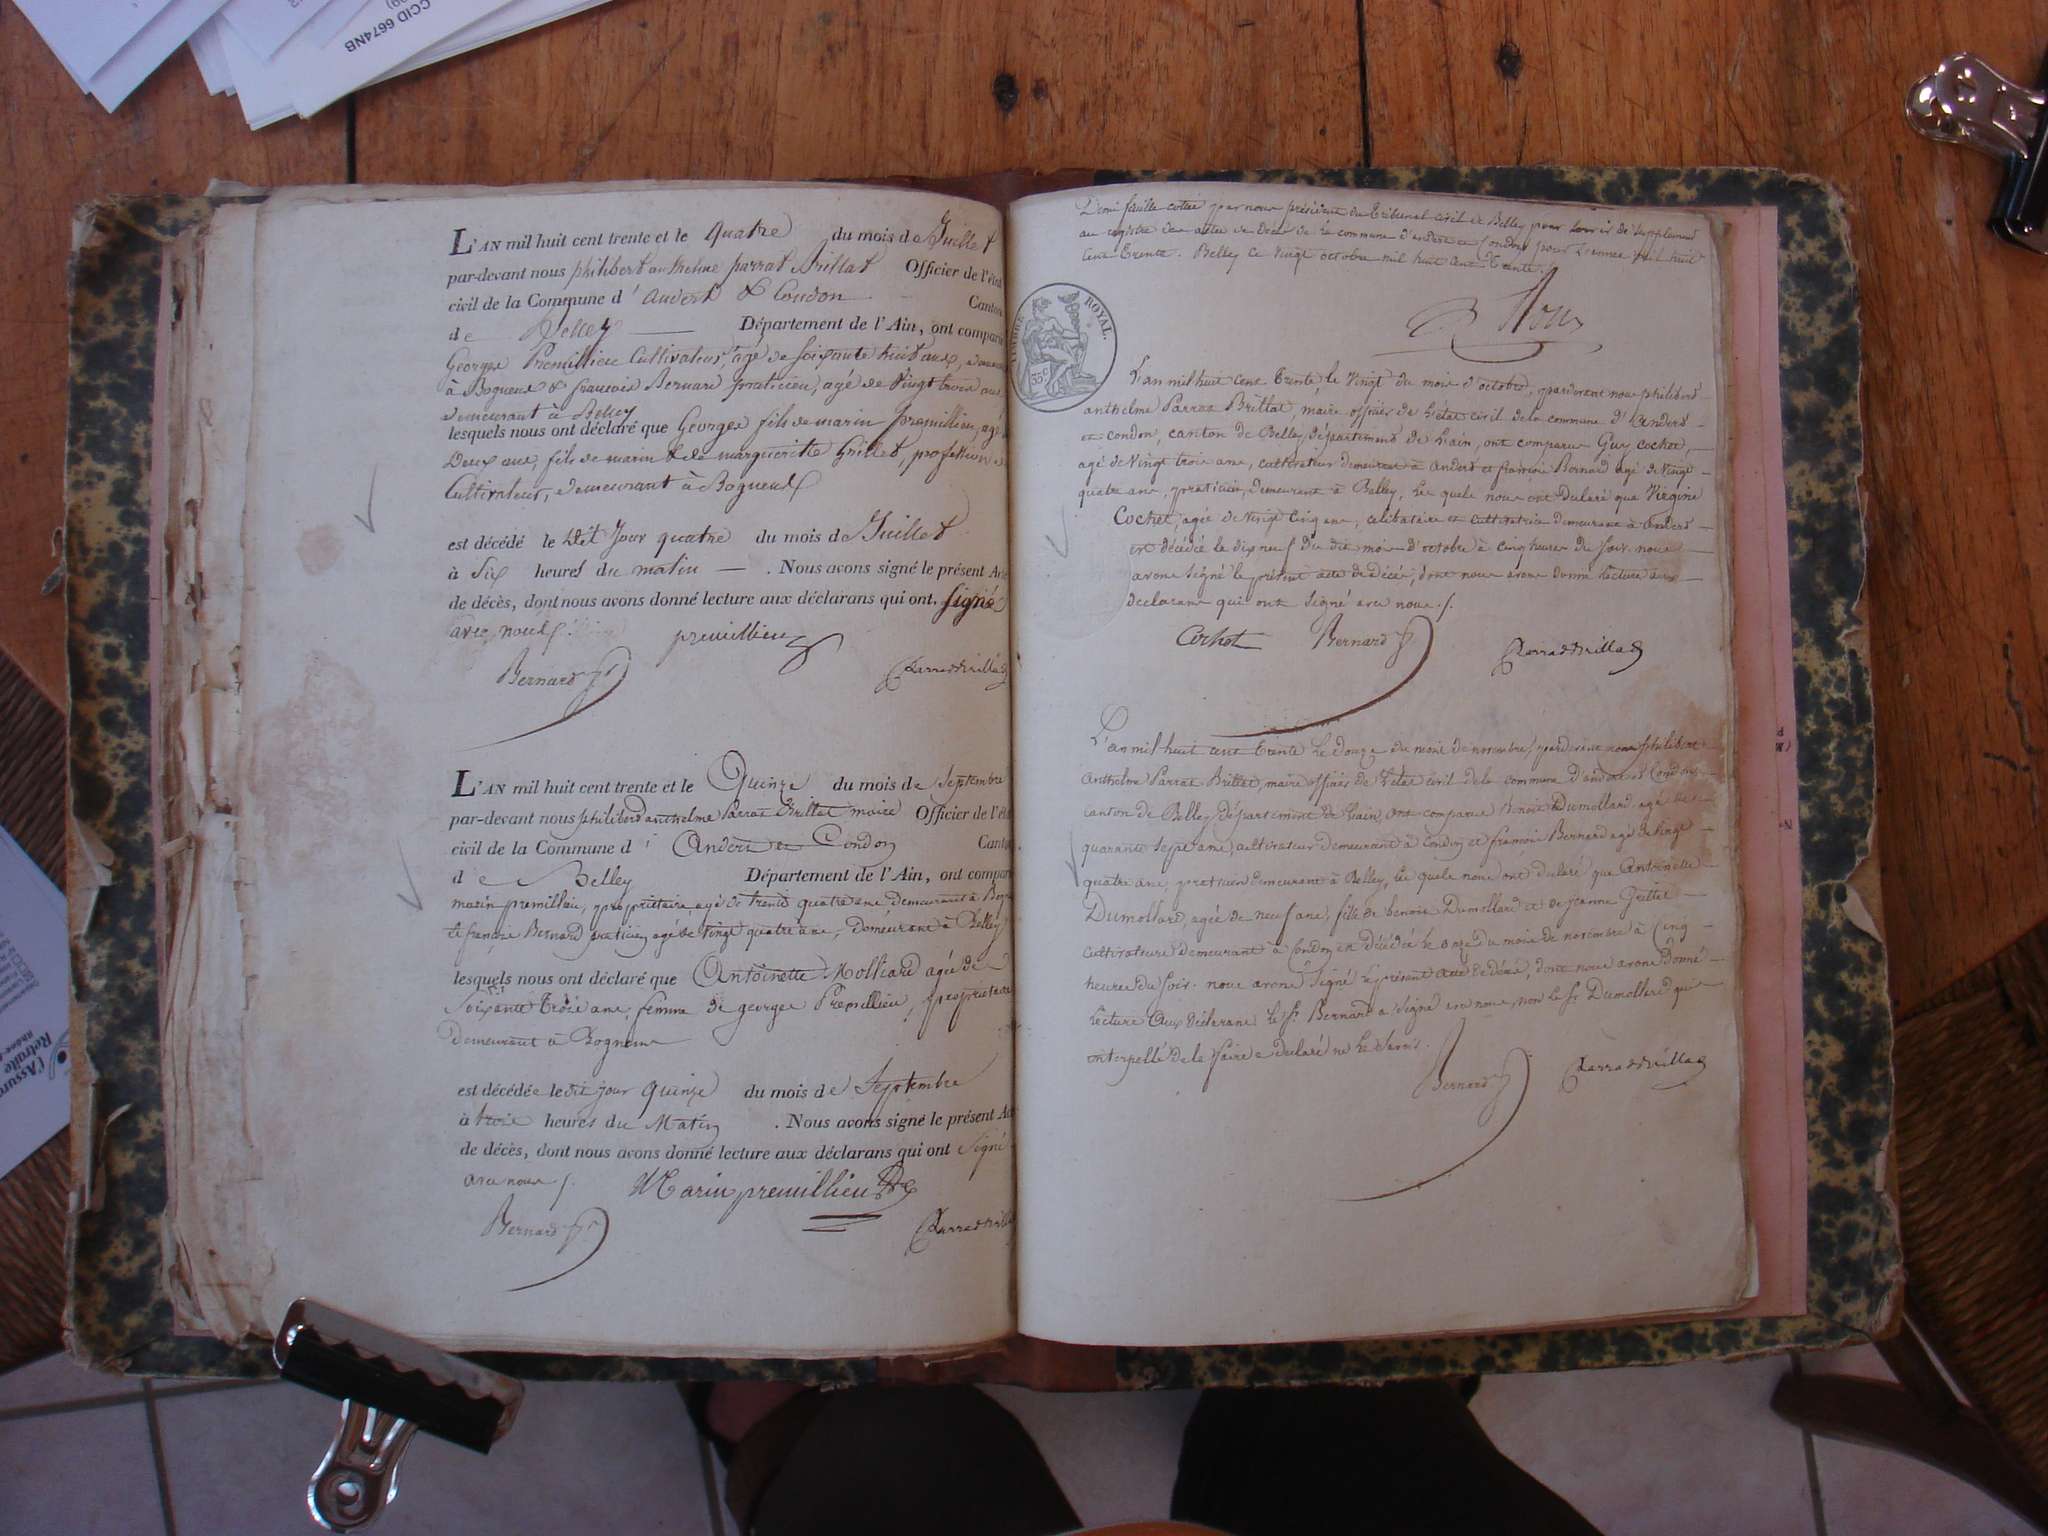 CCID 6674NB
L'AN mil huit cent trente et le quatre du mois de Juillet
par-devant nous philibert anthelme parrat Brillat Officier de l'état
civil de la Commune d'andert & Condon Canton
de Belley Département de l'Ain, ont comparu
George Premillieu Cultivateur, agé de soixante huit ans,
à Bognens & francois Bernard praticien, agé de vingt trois ans
demeurant à Belley
lesquels nous ont déclaré que George fils de marin premillieu, agé
Deux ans, fils de marin & de marguerite Grillet, profession de
Cultivateur, demeurant à Bognens
est décédé le dit Jour quatre du mois de Juillet
à six heures du matin . Nous avons signé le présent Acte
de décès, dont nous avons donné lecture aux déclarans qui ont signé
avec nous
premillieu
Bernard
Parrat Brillat
L'AN mil huit cent trente et le Quinze du mois de Septembre
par-devant nous philibert anthelme Parrat Brillat maire Officier de l'état
civil de la Commune d'Andert et Condon Canton
de Belley Département de l'Ain, ont comparu
marin premillieu, propriétaire, agé de trente quatre ans demeurant à
et françois Bernard praticien agé de vingt quatre ans, demeurant à Belley
lesquels nous ont déclaré que Antoinette Molliard agée de
soixante trois ans, femme de george Premillieu, propriétaire
demeurant à Bognens
est décédée le dit jour Quinze du mois de Septembre
à trois heures du Matin . Nous avons signé le présent Acte
de décès, dont nous avons donné lecture aux déclarans qui ont Signé
avec nous /.
Marin premillieu
Bernard
Parrat Brillat
Demi feuille cottée par nous président du Tribunal civil de Belley pour servir de supplement
au registre des actes de décès de la commune d'andert et Condon pour l'année mil huit
cent trente. Belley le vingt octobre mil huit cent trente.
TIMBRE ROYAL.
35 c
L'an mil huit cent trente, le vingt du mois d'octobre, pardevant nous philibert
anthelme Parrat Brillat, maire officier de l'état civil de la commune d'Andert
et condon, canton de Belley, département de l'ain, ont comparu Guy Cochet,
agé de vingt trois ans, cultivateur demeurant à Andert et françois Bernard agé de vingt
quatre ans, praticien, demeurant à Belley, les quels nous ont déclaré que Virginie
Cochet, agée de vingt cinq ans, celibataire et cultivatrice demeurant à Andert
est décédée le dix neuf du dit mois d'octobre à cinq heures du soir. nous
avons signé le présent acte de décès, dont nous avons donné lecture aux
declarans qui ont signé avec nous /.
Cochet
Bernard
Parrat Brillat
L'an mil huit cent trente le douze du mois de novembre, pardevant nous philibert
Anthelme Parrat Brillat, maire officier de l'état civil de la commune d'andert et Condon
canton de Belley, département de l'ain, ont comparu Benoit Dumollard agé de
quarante sept ans, cultivateur demeurant à Condon et françois Bernard agé de vingt
quatre ans, praticien demeurant à Belley, les quels nous ont déclaré que Antoinette
Dumollard, agée de neuf ans, fille de benoit Dumollard et de jeanne Grillet
cultivateurs demeurant à Condon est décédée le onze du mois de novembre à Cinq
heures du soir. nous avons signé le présent acte de décès, dont nous avons donné
lecture aux déclarans. le Sr. Bernard a signé avec nous, non le Sr Dumollard qui
interpellé de le faire a déclaré ne le savoir.
Bernard
Parrat Brillat
l'Assurance
Retraite